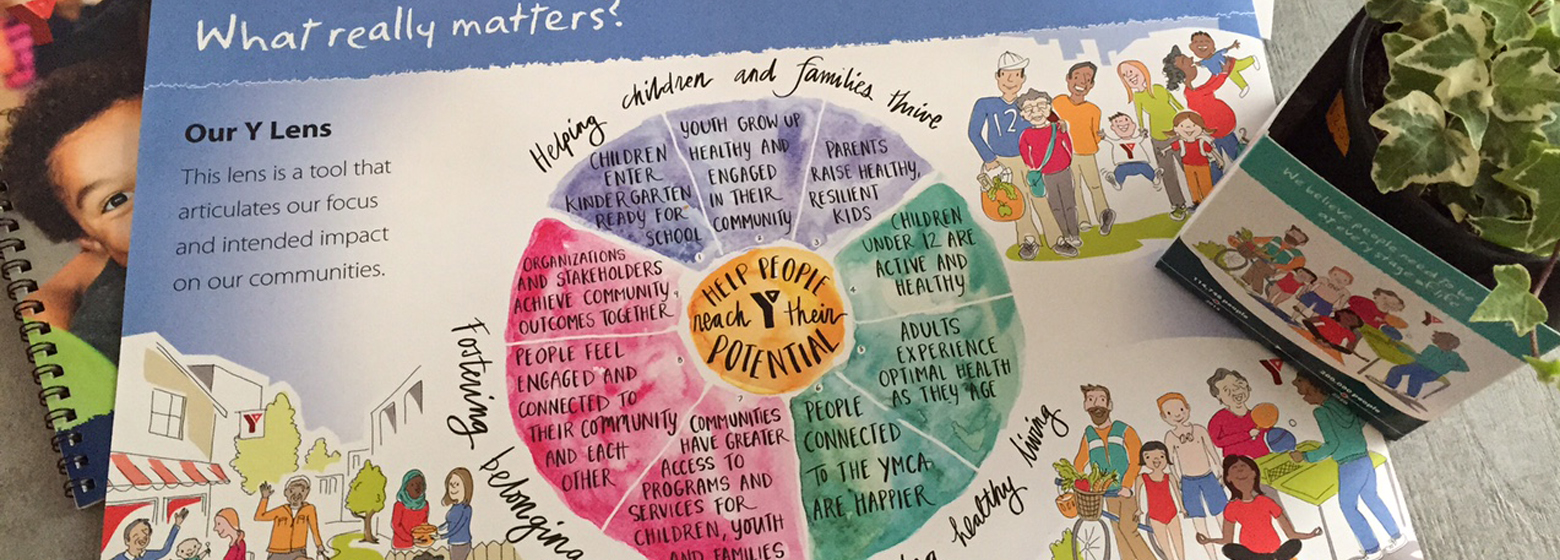 What really matters?
Our Y Lens
This lens is a tool that
articulates our focus
and intended impact
on our communities.
Helping children and families thrive
CHILDREN
ENTER
KINDERGARTEN
READY FOR
SCHOOL
1
YOUTH GROW UP
HEALTHY AND
ENGAGED
IN THEIR
COMMUNITY
2
PARENTS
RAISE HEALTHY,
RESILIENT
KIDS
3
CHILDREN
UNDER 12 ARE
ACTIVE AND
HEALTHY
4
ADULTS
EXPERIENCE
OPTIMAL HEALTH
AS THEY AGE
5
PEOPLE
CONNECTED
TO THE YMCA
ARE HAPPIER
6
healthy living
COMMUNITIES
HAVE GREATER
ACCESS TO
PROGRAMS AND
SERVICES FOR
CHILDREN, YOUTH
AND FAMILIES
7
PEOPLE FEEL
ENGAGED AND
CONNECTED TO
THEIR COMMUNITY
AND EACH
OTHER
8
ORGANIZATIONS
AND STAKEHOLDERS
ACHIEVE COMMUNITY
OUTCOMES TOGETHER
Fostering belonging
HELP PEOPLE
reach Y their
POTENTIAL
12
Y
Y
We believe people need to be
at every stage of life